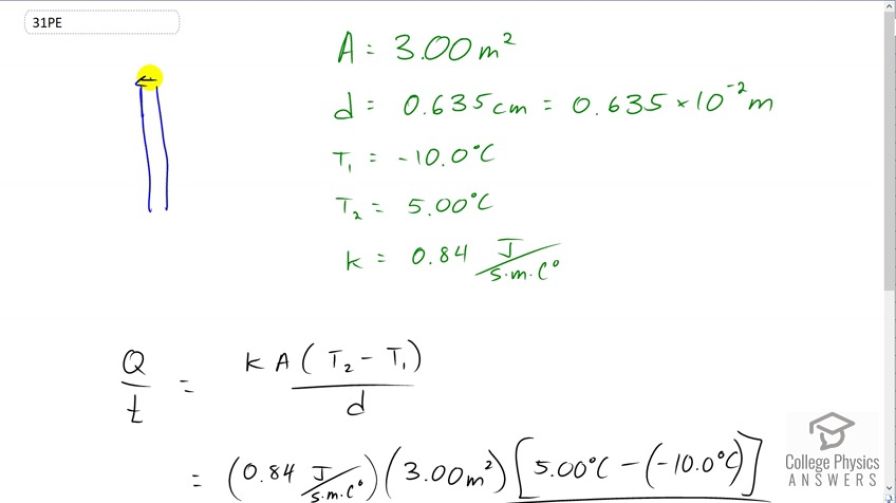 31PE
A = 3.00 m²
d = 0.635 cm = 0.635 × 10⁻² m
T₁ = -10.0°C
T₂ = 5.00°C
k = 0.84 J/s·m·C°
Q/t = kA(T₂ - T₁)/d
= (0.84 J/s·m·C°)(3.00 m²)[5.00°C - (-10.0°C)]
College Physics
ANSWERS